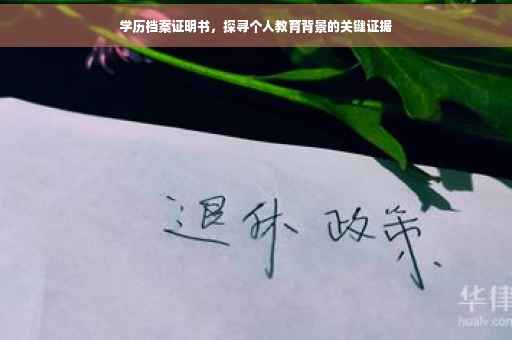 学历档案证明书，探寻个人教育背景的关键证据
退休 政策
华律
hualv.com